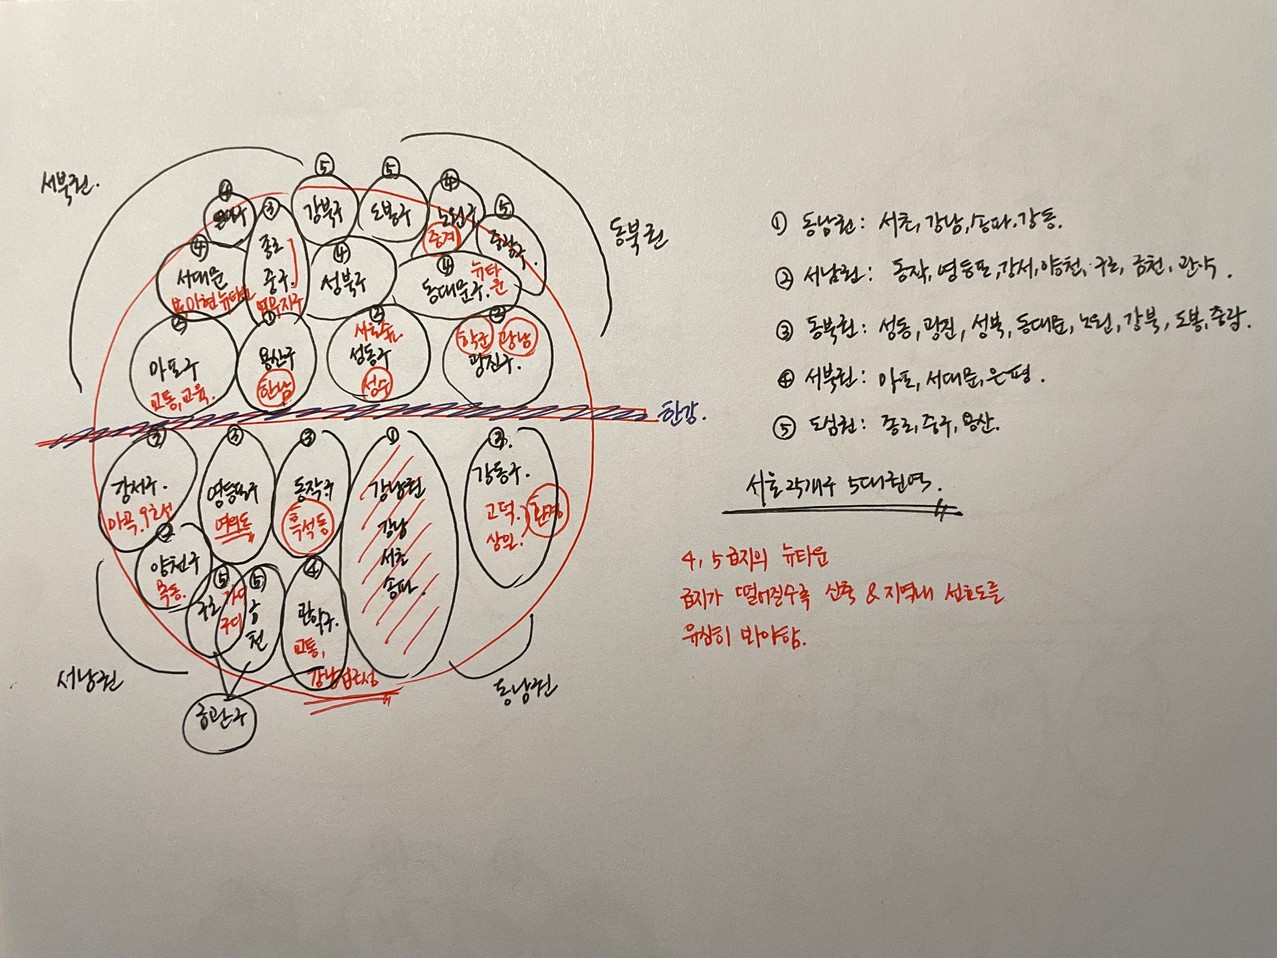 서북권.
동북권
⑤ ⑤ ④
④ ③ ⑤
강북구 도봉구 노원구
중계
중랑구
④ ④ ④
서대문
종로
중구.
업무지구
성북구
동대문구. 뉴타운
② ① ② ②
마포구
교통, 교육.
용산구
한남
성동구
성수
학군 광남
광진구.
한강.
③ ③ ③ ① ③.
강서구.
마곡. 9호선
영등포구
여의도
동작구
흑석동
강남권
강남
서초
송파.
강동구.
고덕.
상일.
환경
양천구
목동.
⑤ ⑤ ④
구로
가디
구디
금천
관악구.
교통,
강남접근성
서남권
동남권
금관구
① 동남권: 서초, 강남, 송파, 강동.
② 서남권: 동작, 영등포, 강서, 양천, 구로, 금천, 관악.
③ 동북권: 성동, 광진, 성북, 동대문, 노원, 강북, 도봉, 중랑.
④ 서북권: 마포, 서대문, 은평.
⑤ 도심권: 종로, 중구, 용산.
서울 25개구 5대권역.
4, 5급지의 뉴타운
급지가 떨어질수록 신축 & 지역내 선호도를
유심히 봐야함.